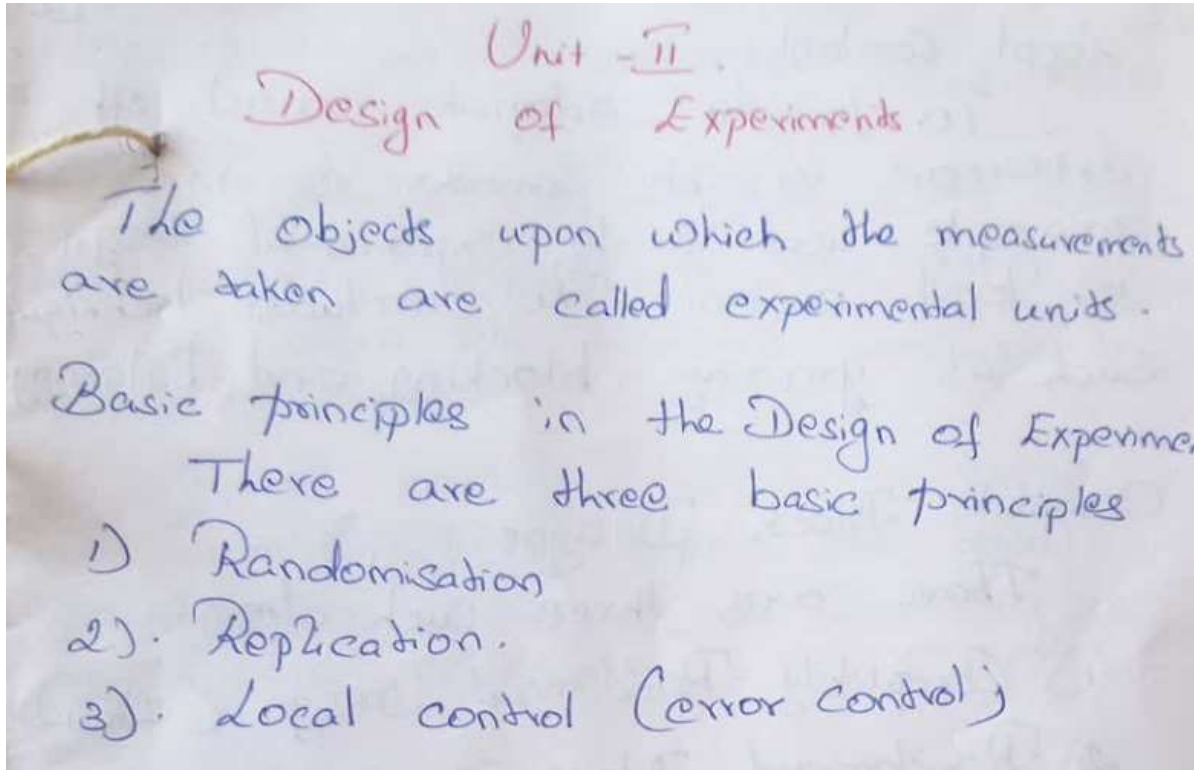 Unit - II.
Design of Experiments
The objects upon which the measurements
are taken are called experimental units.
Basic principles in the Design of Experime
There are three basic principles
1) Randomisation
2). Replication.
3). Local control (error control)